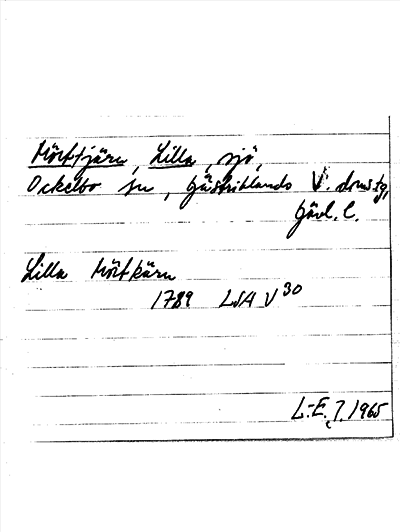 Mörttjärn, Lilla, sjö,
Ockelbo sn, Gästriklands V. domsg,
Gävl. l.
Lilla Mörtkärn
1789 LSA V 30
L-E. J. 1965